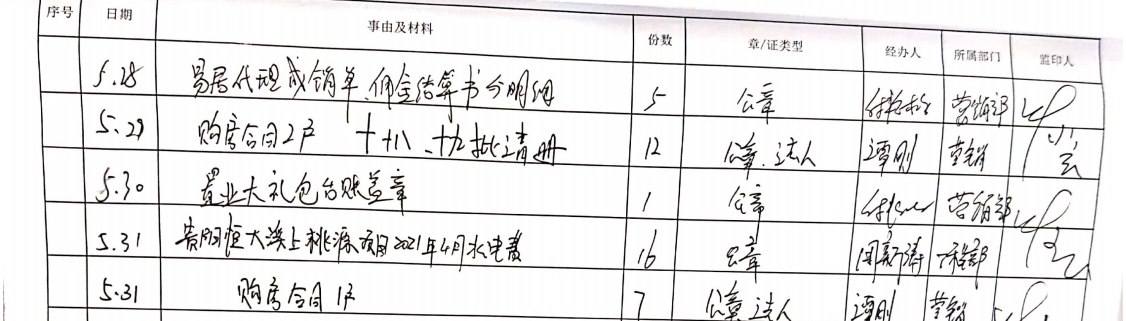 序号 日期 事由及材料 份数 章/证类型 经办人 所属部门 监印人
5.28 易居代理成销单、佣金结算书分明细 5 公章 营销部
5.29 购房合同2户 十八、十九批请册 12 公章、法人 谭刚 营销
5.30 置业大礼包台账盖章 1 公章 营销部
5.31 贵阳恒大溪上桃源项目2021年4月水电费 16 公章 周新涛 工程部
5.31 购房合同1户 7 公章、法人 谭刚 营销